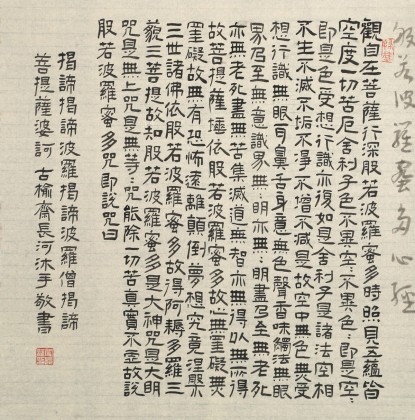 般若波羅蜜多心經
觀自在菩薩行深般若波羅蜜多時照見五蘊皆
空度一切苦厄舍利子色不異空〻不異色〻即是空〻
即是色受想行識亦復如是舍利子是諸法空相
不生不滅不垢不淨不增不減是故空中無色無受
想行識無眼耳鼻舌身意無色聲香味觸法無眼
界乃至無意識界無明亦無〻明盡乃至無老死
亦無老死盡無苦集滅道無智亦無得以無所得
故菩提薩埵依般若波羅蜜多故心無罣礙無
罣礙故無有恐怖遠離顛倒夢想究竟涅槃
三世諸佛依般若波羅蜜多故得阿耨多羅三
藐三菩提故知般若波羅蜜多是大神咒是大明
咒是無上咒是無等〻咒能除一切苦真實不虛故說
般若波羅蜜多咒即說咒曰
揭諦揭諦波羅揭諦波羅僧揭諦
菩提薩婆訶 古榆齋長河沐手敬書